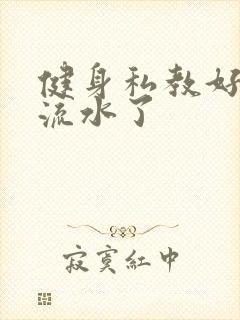 健身私教好
流水了
寂寞红中